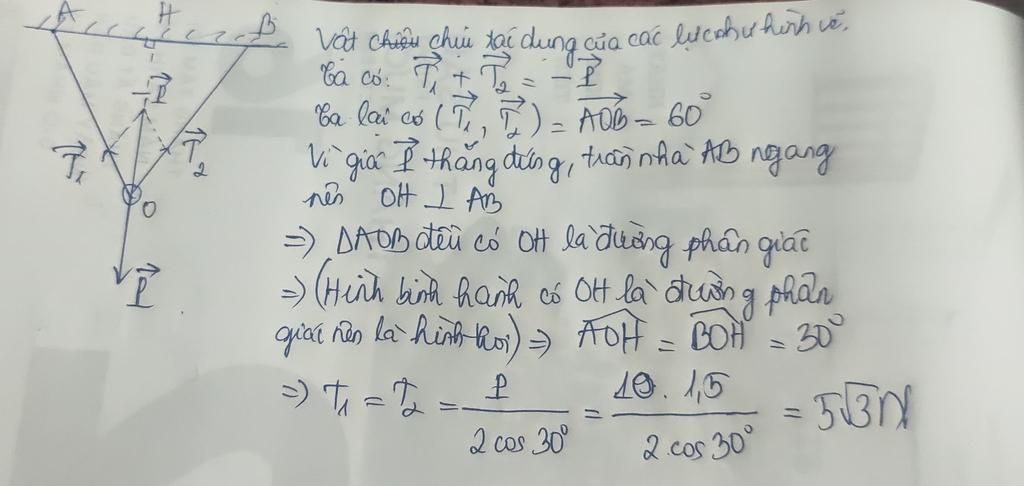 A H B
Vật chịu tác dụng của các lực như hình vẽ.
Ta có: T₁ + T₂ = -P
Ta lại có (T₁, T₂) = AOB = 60°
Vì giác P thẳng đứng, trần nhà AB ngang
nên OH ⊥ AB
=> ΔAOB đều có OH là đường phân giác
=> (Hình bình hành có OH là đường phân
giác nên là hình thoi) => AOH = BOH = 30°
=> T₁ = T₂ = P / (2 cos 30°) = 10 . 1,5 / (2 . cos 30°) = 5√3 N
-P
T₁ T₂
O
P